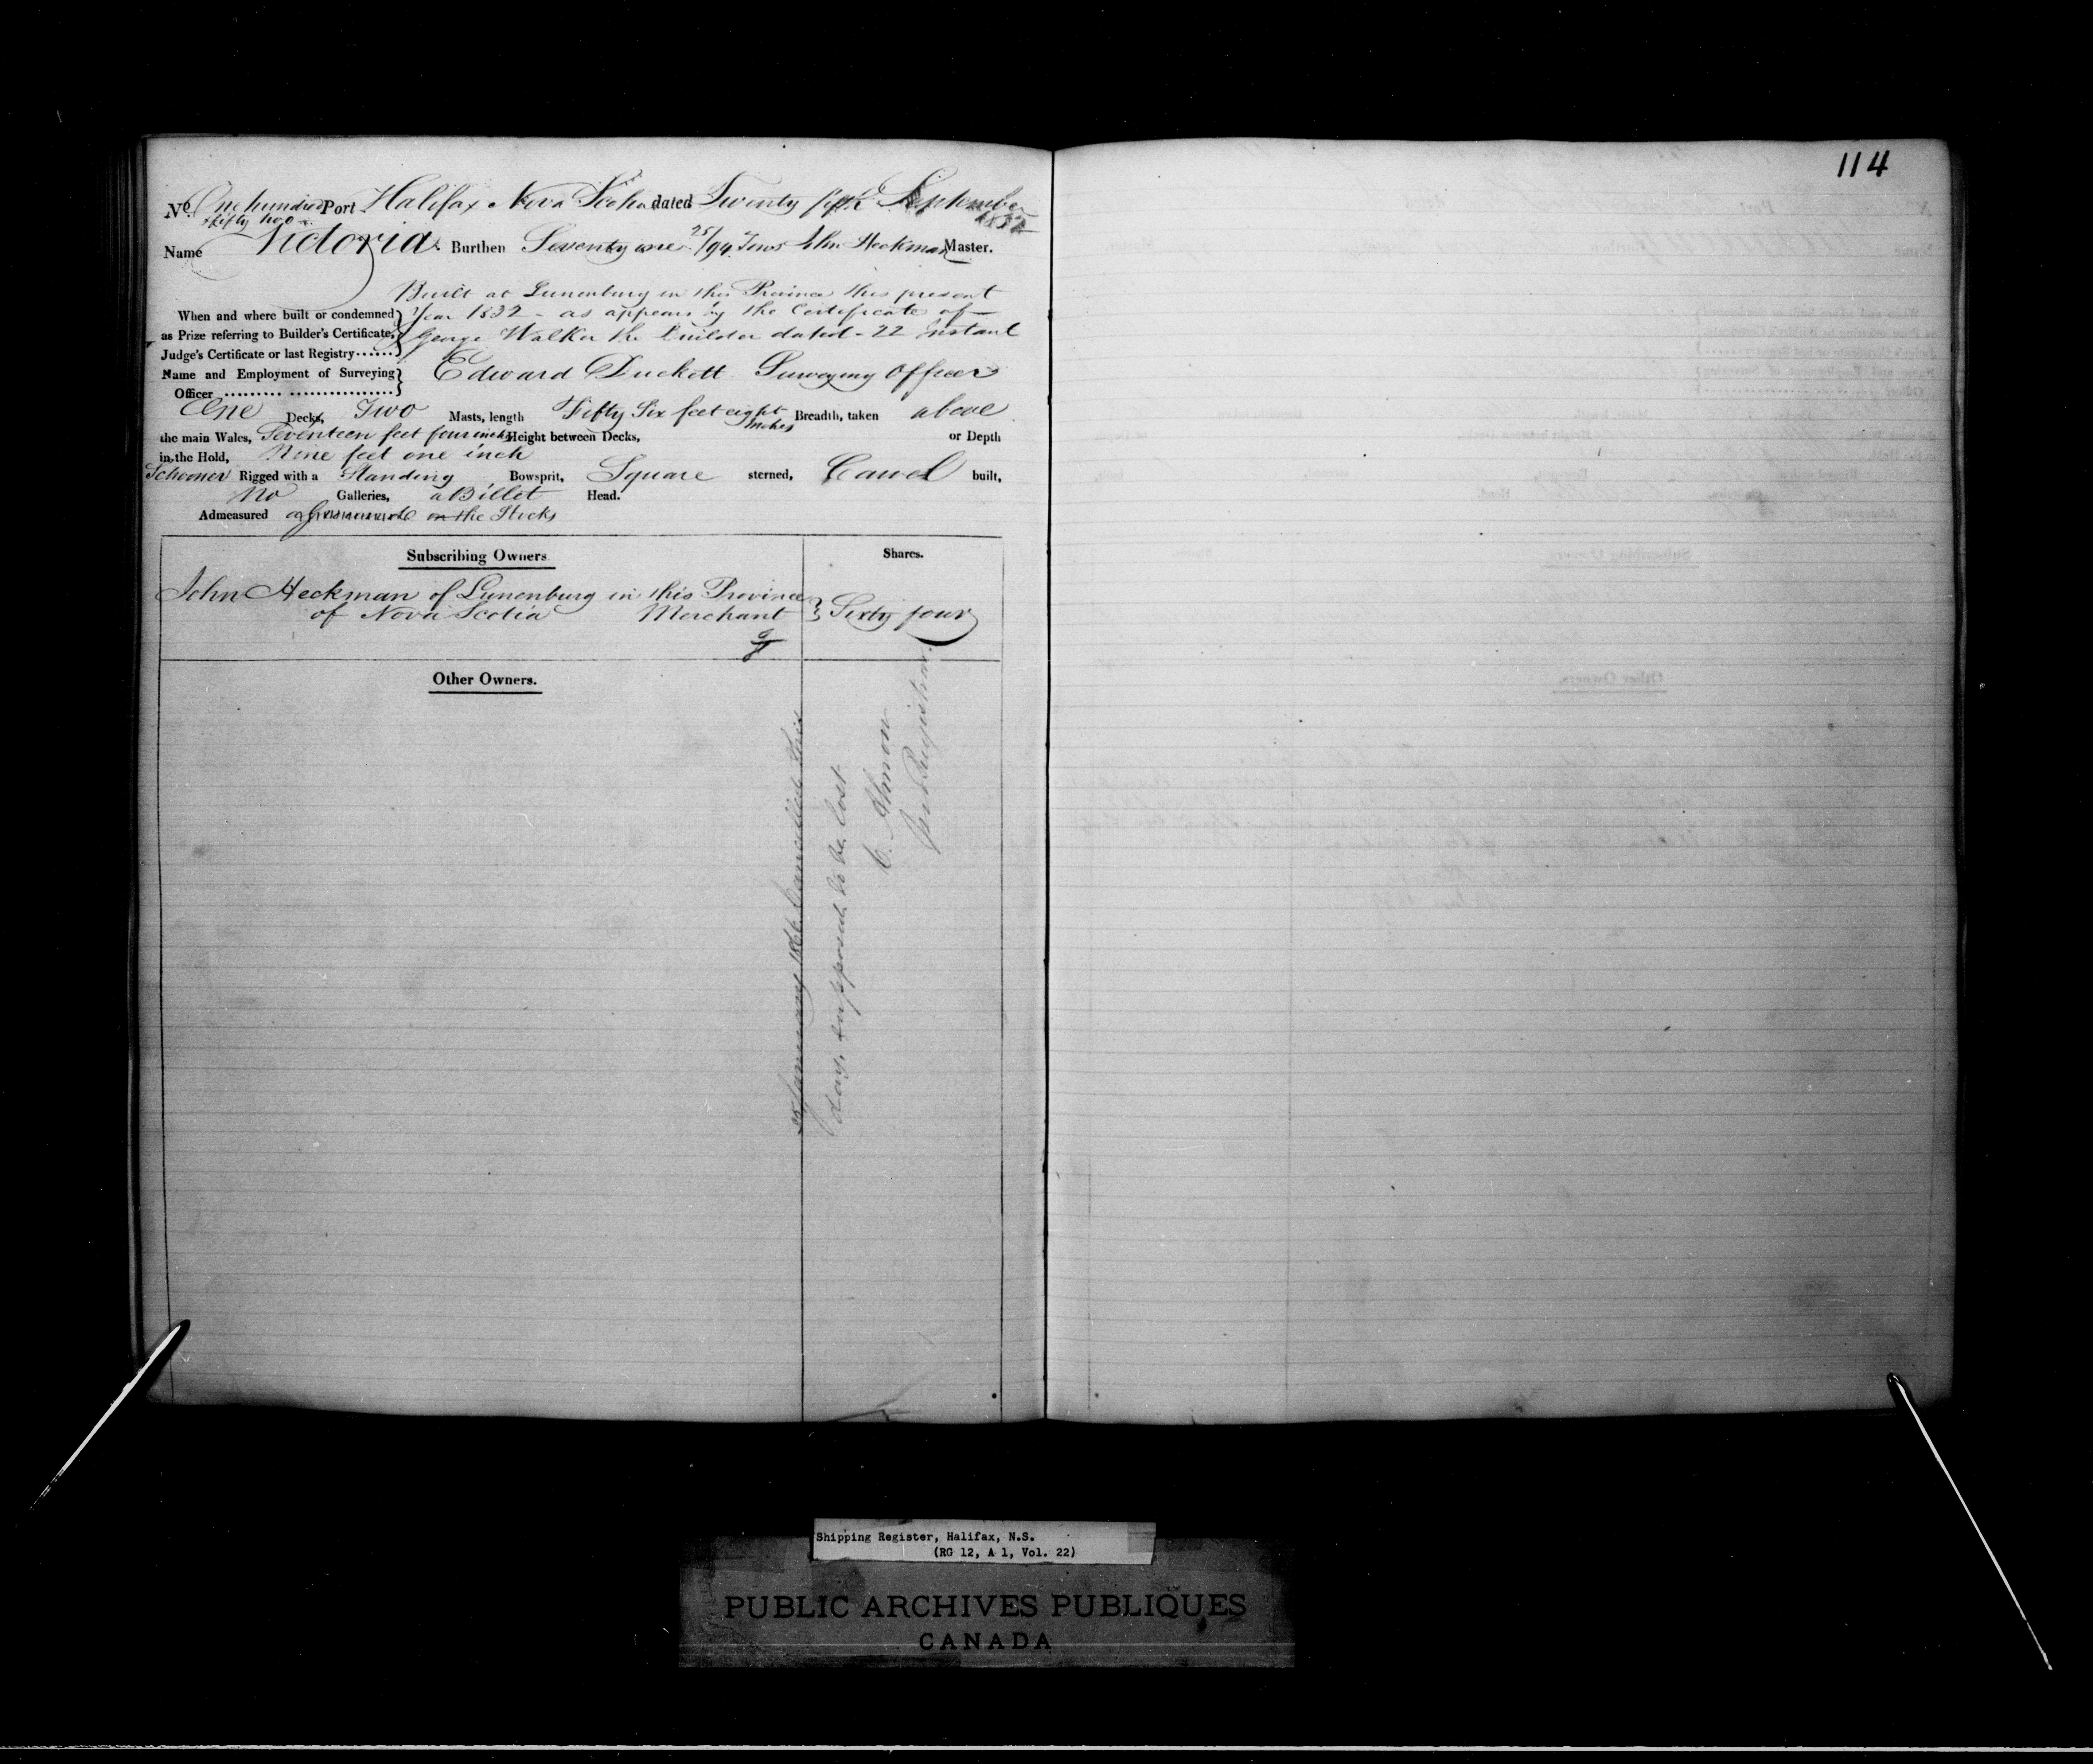 114
No. One hundred & fifty two Port Halifax Nova Scotia dated Twenty fifth September 1832
Name Victoria Burthen Seventy one 25/94 Tons John Heckman Master.
Built at Lunenburg in this Province this present
When and where built or condemned Year 1832 - as appears by the Certificate of
as Prize referring to Builder's Certificate, George Walker the builder dated - 22 Instant
Judge's Certificate or last Registry
Name and Employment of Surveying Edward Duckett Surveying Officer
Officer
One Decks, Two Masts, length Fifty Six feet eight inches Breadth, taken above
the main Wales, Seventeen feet four inches Height between Decks, or Depth
in the Hold, Nine feet one inch
Schooner Rigged with a Standing Bowsprit, Square sterned, Carvel built,
No Galleries, a Billet Head.
Admeasured on the Stocks
Subscribing Owners Shares.
John Heckman of Lunenburg in this Province
of Nova Scotia Merchant Sixty four
Other Owners.
January 1866 Cancelled this
day, supposed to be lost
C. Almon
Registrar
Shipping Register, Halifax, N.S.
(RG 12, A 1, Vol. 22)
PUBLIC ARCHIVES PUBLIQUES
CANADA